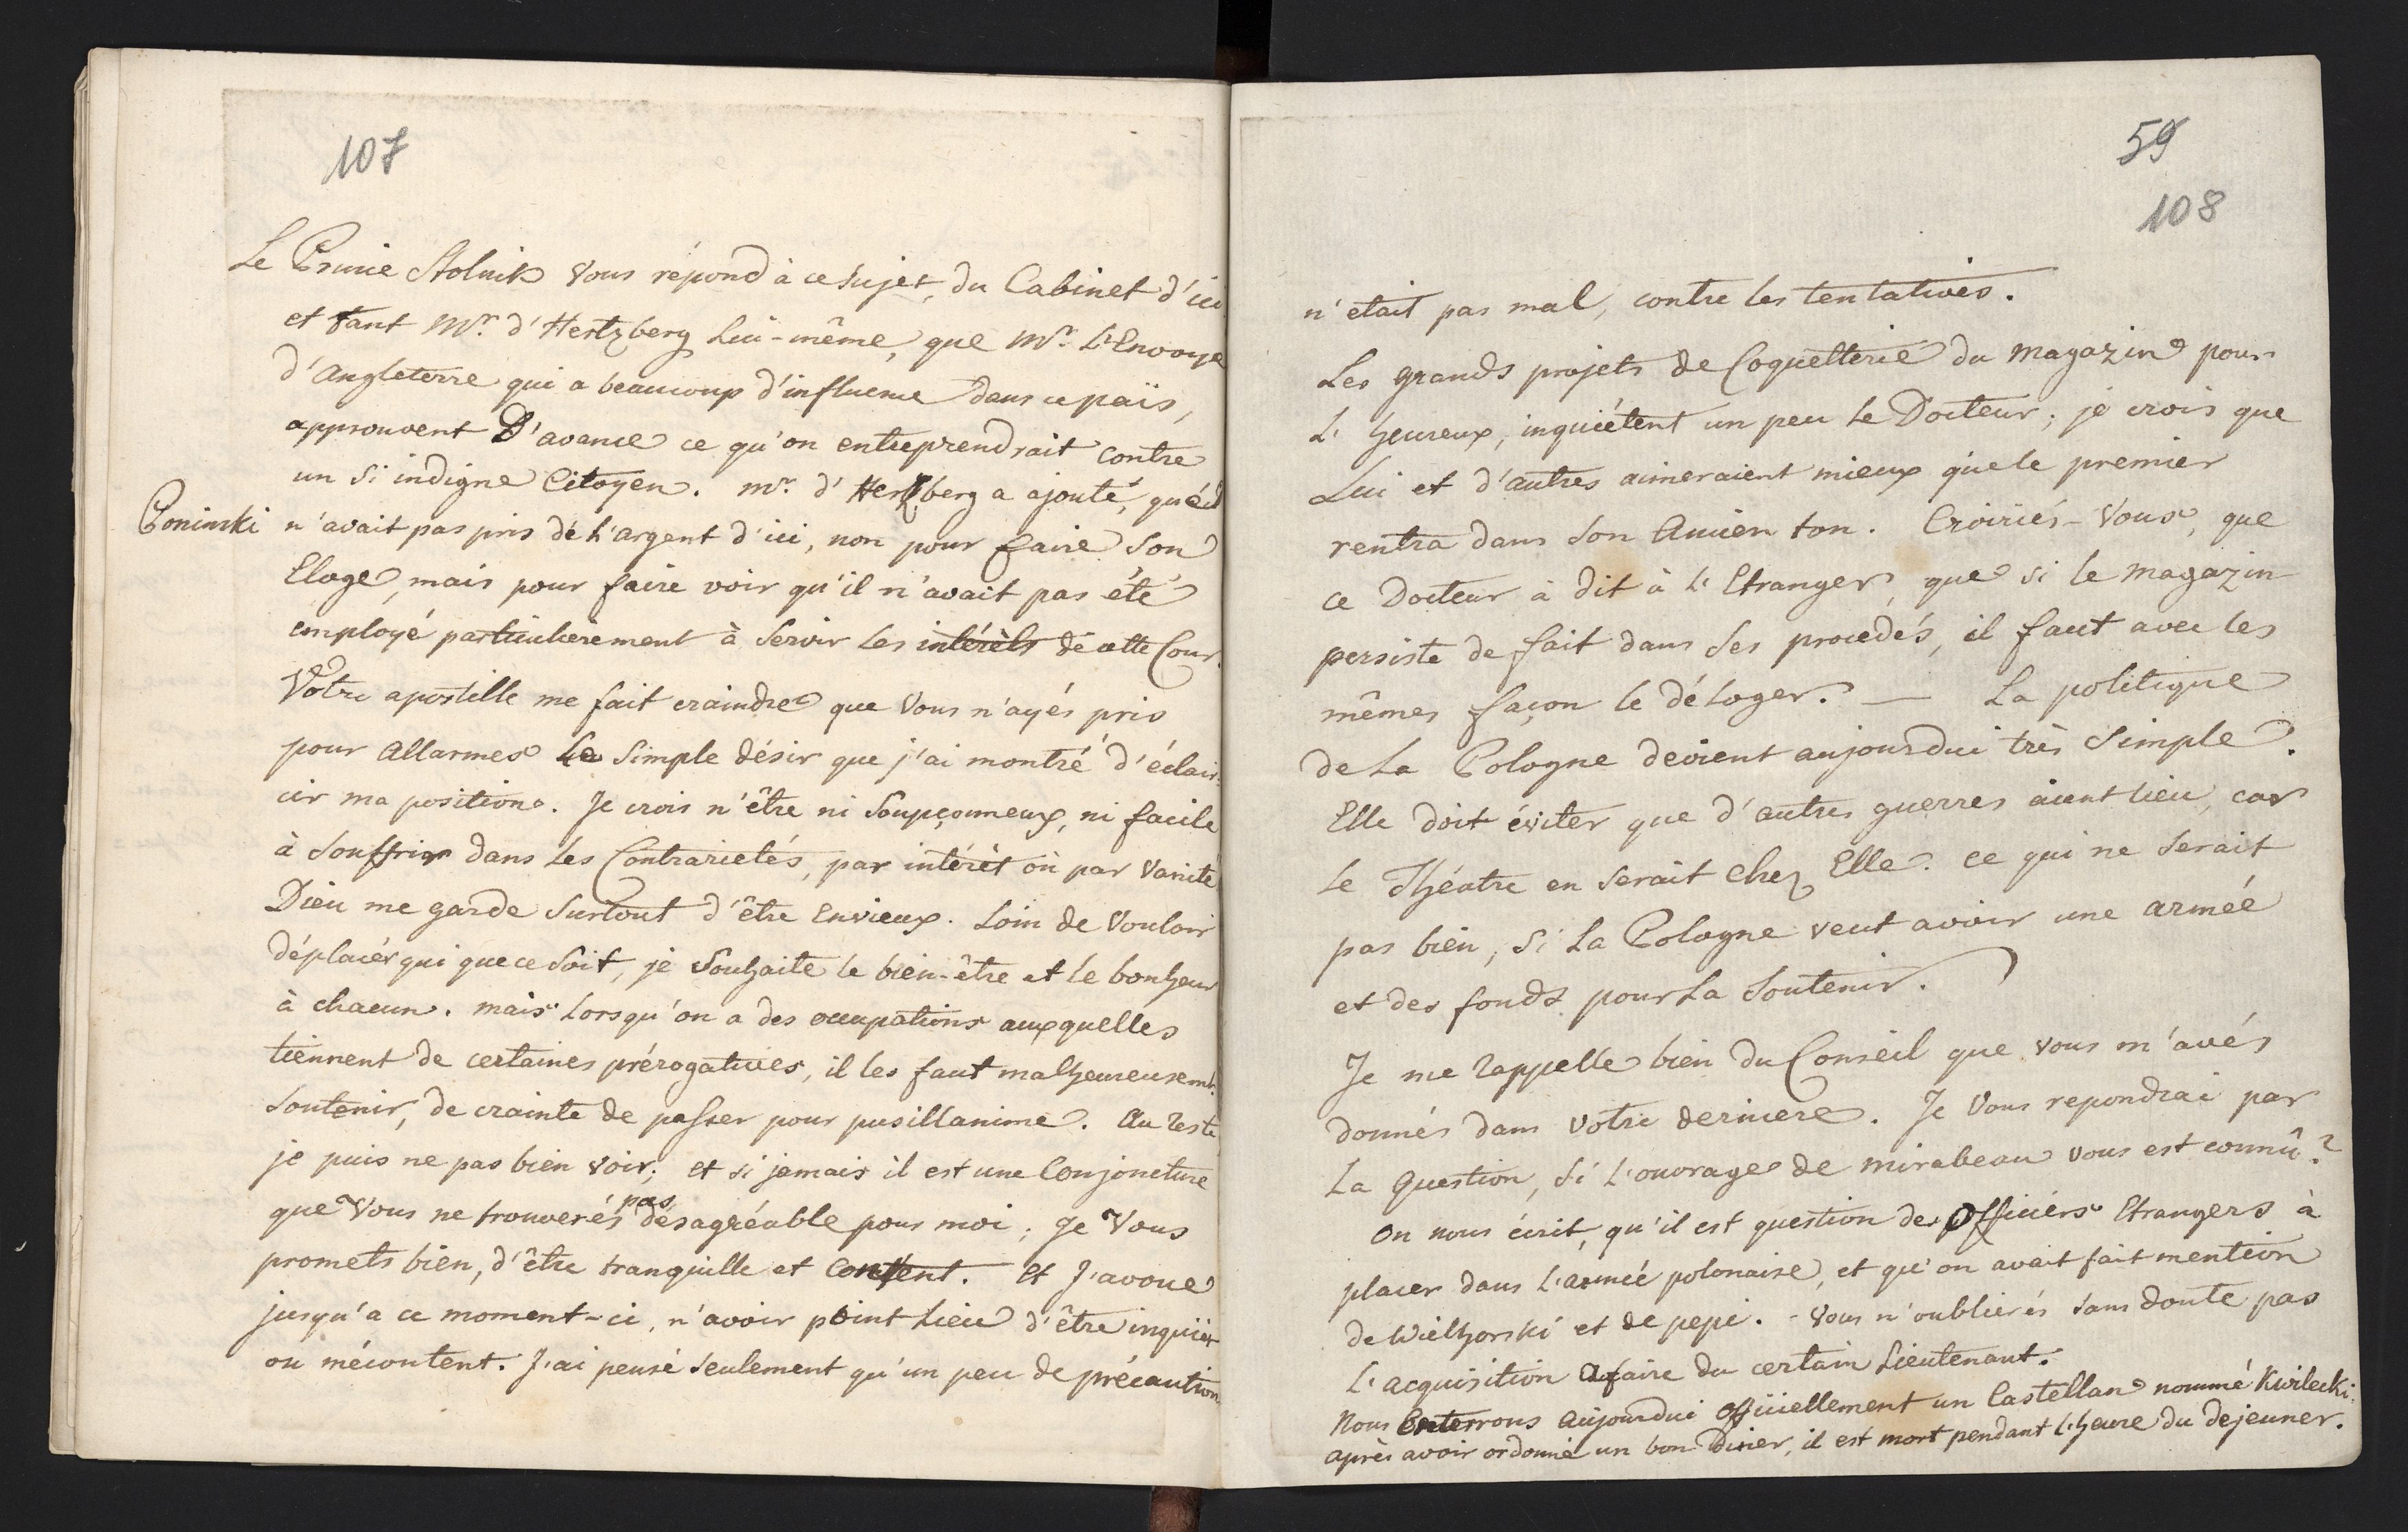 107
Le Prince Stolnik vous répond à ce sujet, du Cabinet d'ici
et tant Mr. d'Hertzberg lui-même, que Mr. L'Envoye
d'Angleterre qui a beaucoup d'influence dans ce païs,
approuvent D'avance ce qu'on entreprendrait contre
un si indigne Citoyen. Mr. d'Hertzberg a ajouté, qu'il
Poninski n'avait pas pris de l'argent d'ici, non pour faire son
Eloge, mais pour faire voir qu'il n'avait pas été
employé particulierement à servir les intérêts de cette Cour.
Votre apostille me fait craindre que vous n'ayés pris
pour Allarmes le simple désir que j'ai montré d'éclair-
cir ma position. Je crois n'être ni Soupçonneux, ni facile
à souffrir dans les Contrarietés, par intérêt où par Vanité
Dieu me garde surtout d'être Envieux. Loin de Vouloir
déplacér qui que ce soit, je Souhaite le bien-être et le bonheur
à chacun. mais lorsqu'on a des occupations auxquelles
tiennent de certaines prérogatives, il les faut malheureusemt.
Soutenir, de crainte de passer pour pusillanime. Au reste
je puis ne pas bien voir; et si jamais il est une Conjoncture
que Vous ne trouverés pas désagréable pour moi; Je Vous
promets bien, d'être tranquille et Content. Et J'avoue
jusqu'a ce moment-ci, n'avoir point Lieu d'être inquièt
ou mécontent. J'ai pensé seulement qu'un peu de précaution
59
108
n'etait pas mal, contre les tentatives.
Les grands projets de Coquetterie du Magazin pour
L'heureux, inquiétent un peu le Docteur; je crois que
Lui et d'autres aimeraient mieux que le premier
rentra dans son Ancien ton. Croiriés-Vous, que
ce Docteur à dit à l'Etranger, que si le Magazin
persiste de fait dans ses procedés, il faut avec les
mêmes façon le déloger. — La politique
de la Pologne devient aujourdui très simple.
Elle doit éviter que d'autres guerres aient lieu, car
le Théatre en serait chez Elle. ce qui ne serait
pas bien, si La Pologne veut avoir une armée
et des fonds pour la soutenir.
Je me rappelle bien du Conseil que vous m'avés
donnés dans votre derniere. Je Vous repondrai par
La Question, si l'ouvrage de Mirabeau vous est connû?
On nous écrit, qu'il est question des Officiérs Etrangers à
placer dans l'armée polonaise, et qu'on avait fait mention
de Wielhorski et de pepi. - Vous n'oublierés sans doute pas
L'acquisition à faire du certain Lieutenant.
Nous Enterrons aujourdui officiellement un Castellan nommé Kwilecki.
après avoir ordonné un bon Diner, il est mort pendant l'heure du dejeuner.